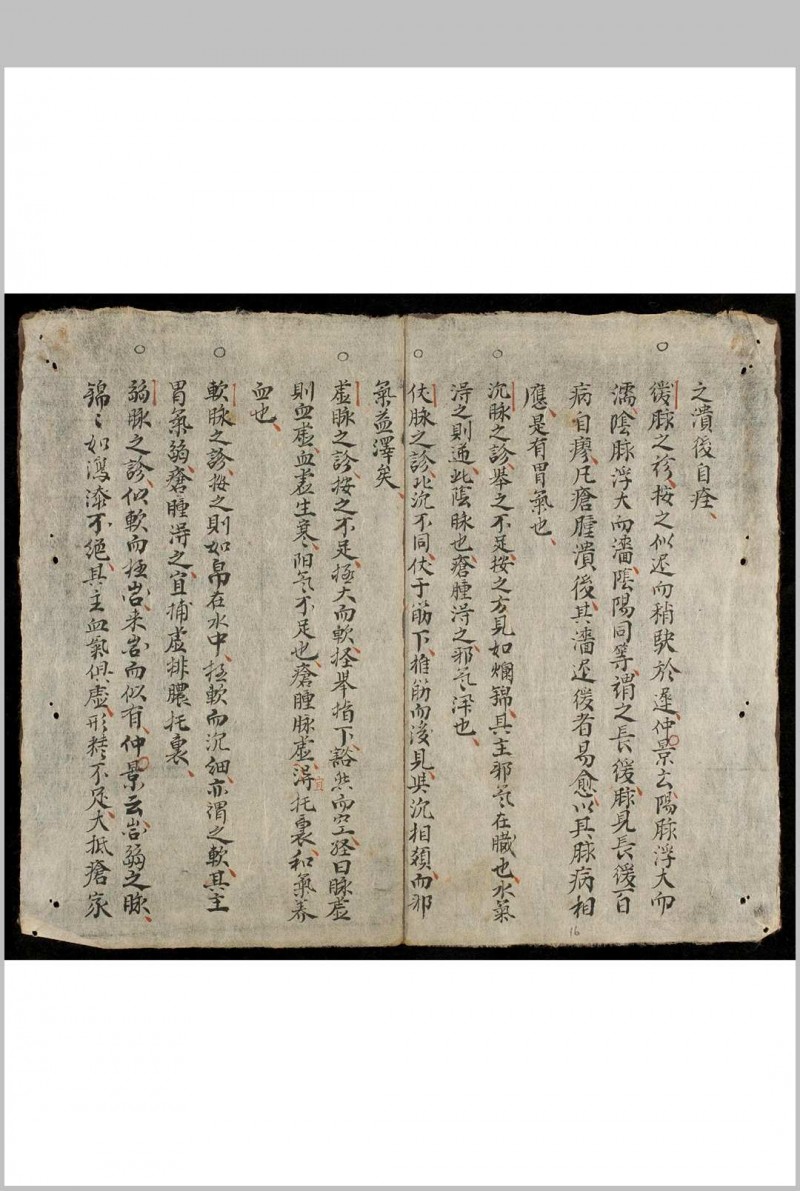 之潰後自痊、
緩脉之診、按之似迟而稍駃於遲、仲景云、陽脉浮大而
濡、陰脉浮大而濇、陰陽同等、謂之長緩、脉見長緩、百
病自瘳、凡瘡腫潰後、其濇迟緩者易愈、以其脉病相
應、是有胃氣也、
沉脉之診、舉之不足、按之方見如爛錦、其主邪氣在臓也、水氣
淂之則逆、此陰脉也、瘡腫淂之、邪氣深也、
伏脉之診、比沉不同、伏于筋下、推筋而後見、與沉相類、而邪
氣益澤矣、
虚脉之診、按之不足、極大而軟、轻舉指下、豁然而空、経曰脉虚
則血虚、血虚生寒、阳氣不足也、瘡腫脉虚、淂宜托裏、和氣养
血也、
軟脉之診、按之則如帛在水中、极軟而沉细、亦谓之軟、其主
胃氣弱、瘡腫淂之、宜補虚排膿托裏、
弱脉之診、似軟而极微、来微而似有、仲景云、微弱之脉、
錦〻如瀉漆不绝、其主血氣俱虚、形精不足、大抵瘡家
16